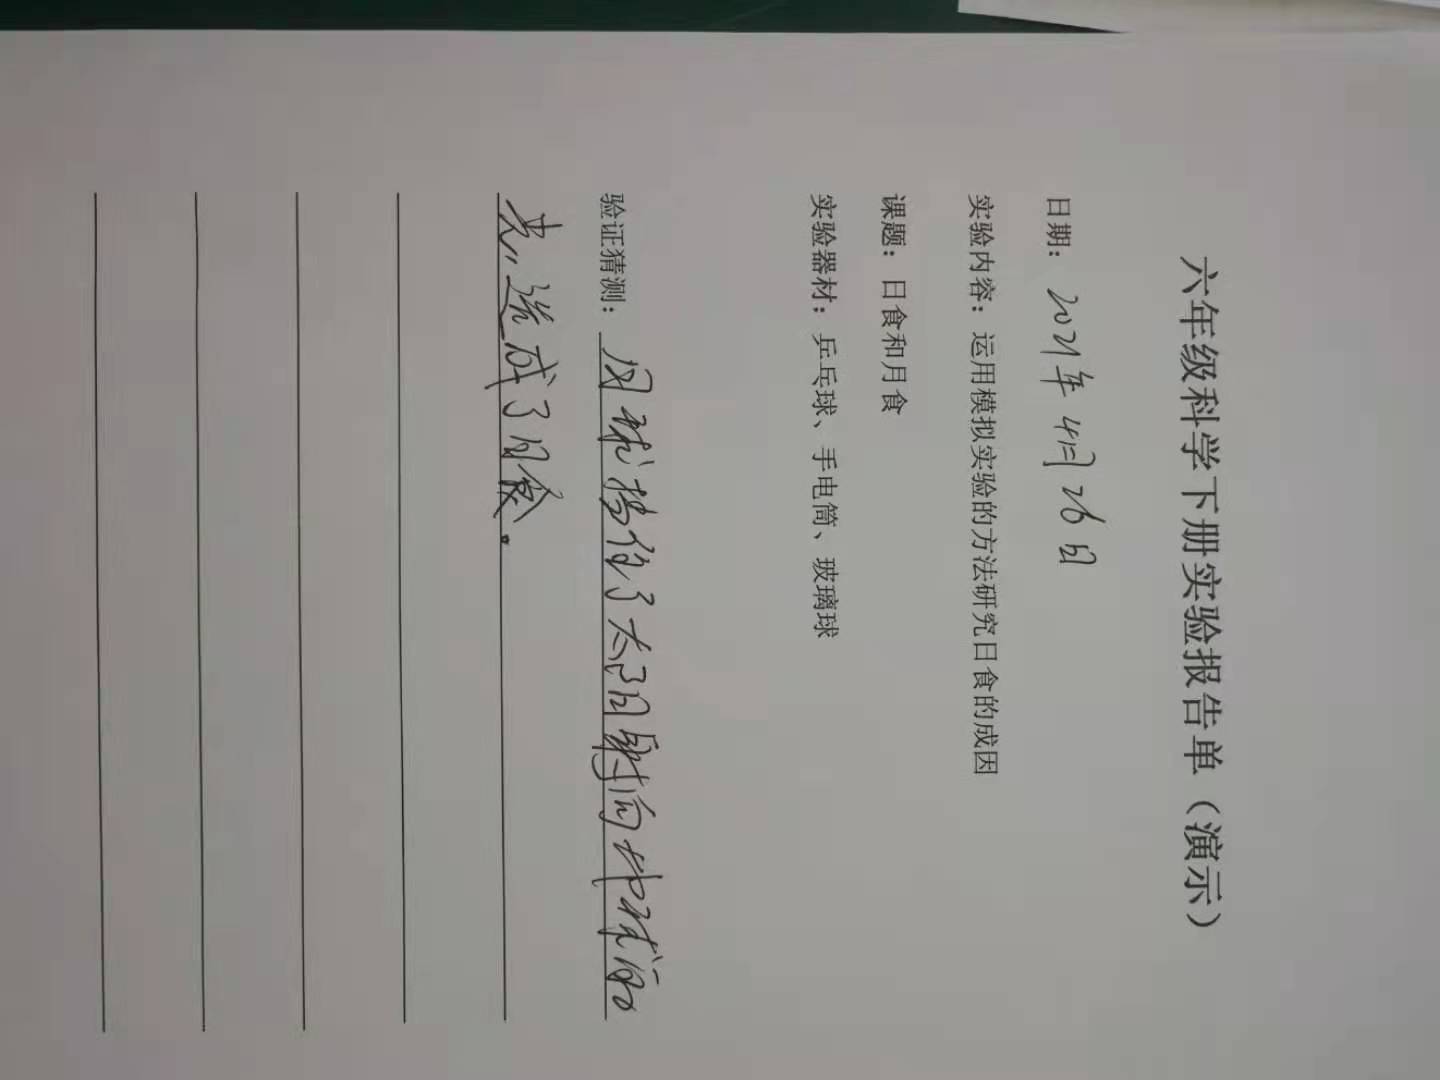 六年级科学下册实验报告单（演示）
日期：2021年4月26日
实验内容：运用模拟实验的方法研究日食的成因
课题：日食和月食
实验器材：乒乓球、手电筒、玻璃球
验证猜测：月球挡住了太阳射向地球的
光，造成了日食。